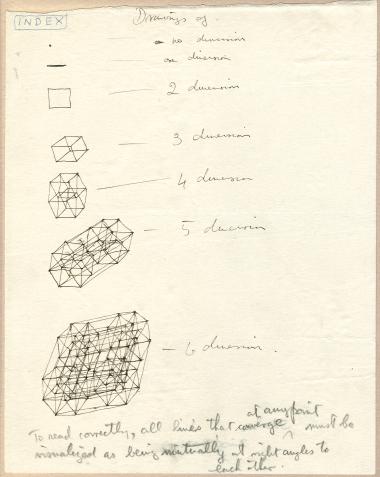 INDEX
Drawings of
no dimension
one dimension
2 dimension
3 dimension
4 dimension
5 dimension
6 dimension.
at any point
To read correctly, all lines that converge ^ must be
visualized as being mutually at right angles to
each other.